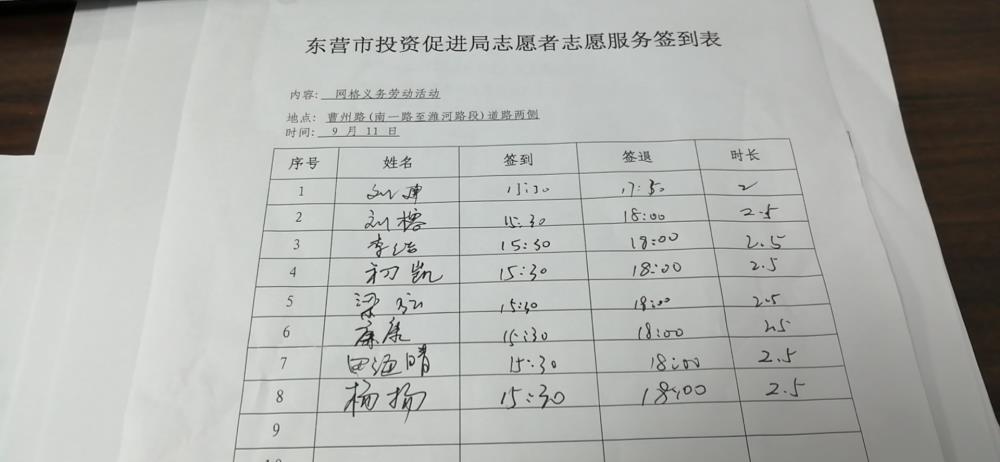 东营市投资促进局志愿者志愿服务签到表
内容: 网格义务劳动活动
地点: 曹州路(南一路至潍河路段)道路两侧
时间: 9 月 11 日
序号 姓名 签到 签退 时长
1 刘 15:30 17:30 2
2 刘榕 15:30 18:00 2.5
3 李洁 15:30 18:00 2.5
4 初凯 15:30 18:00 2.5
5 梁 15:30 18:00 2.5
6 康 15:30 18:00 2.5
7 田海晴 15:30 18:00 2.5
8 杨扬 15:30 18:00 2.5
9